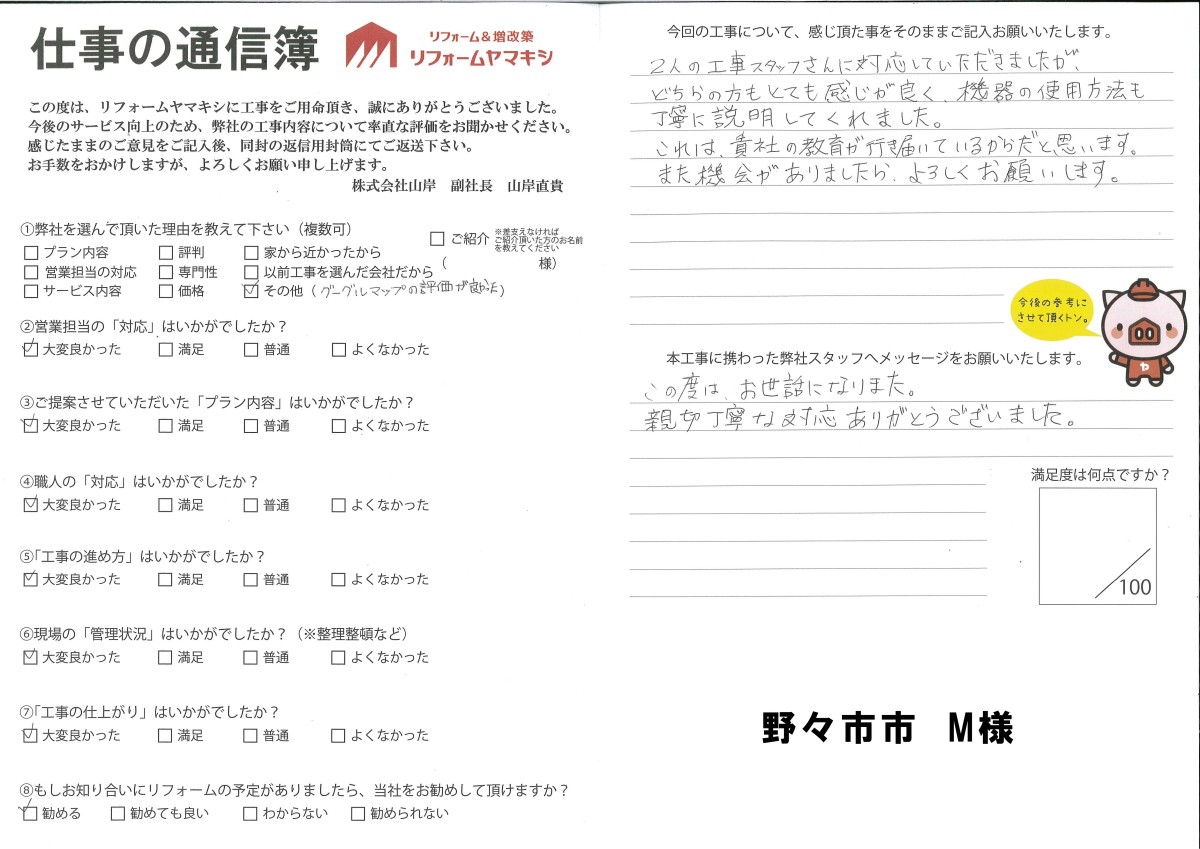 仕事の通信簿
リフォーム&増改築
リフォームヤマキシ
この度は、リフォームヤマキシに工事をご用命頂き、誠にありがとうございました。
今後のサービス向上のため、弊社の工事内容について率直な評価をお聞かせください。
感じたままのご意見をご記入後、同封の返信用封筒にてご返送下さい。
お手数をおかけしますが、よろしくお願い申し上げます。
株式会社山岸 副社長 山岸直貴
①弊社を選んで頂いた理由を教えて下さい（複数可）
□ プラン内容 □ 評判 □ 家から近かったから □ ご紹介 ※差支えなければ
ご紹介頂いた方のお名前
を教えてください
□ 営業担当の対応 □ 専門性 □ 以前工事を選んだ会社だから （ 様）
□ サービス内容 □ 価格 ☑ その他（グーグルマップの評価が良かった）
②営業担当の「対応」はいかがでしたか？
☑ 大変良かった □ 満足 □ 普通 □ よくなかった
③ご提案させていただいた「プラン内容」はいかがでしたか？
☑ 大変良かった □ 満足 □ 普通 □ よくなかった
④職人の「対応」はいかがでしたか？
☑ 大変良かった □ 満足 □ 普通 □ よくなかった
⑤「工事の進め方」はいかがでしたか？
☑ 大変良かった □ 満足 □ 普通 □ よくなかった
⑥現場の「管理状況」はいかがでしたか？（※整理整頓など）
☑ 大変良かった □ 満足 □ 普通 □ よくなかった
⑦「工事の仕上がり」はいかがでしたか？
☑ 大変良かった □ 満足 □ 普通 □ よくなかった
⑧もしお知り合いにリフォームの予定がありましたら、当社をお勧めして頂けますか？
☑ 勧める □ 勧めても良い □ わからない □ 勧められない
今回の工事について、感じ頂た事をそのままご記入お願いいたします。
2人の工事スタッフさんに対応していただきましたが、
どちらの方もとても感じが良く、機器の使用方法も
丁寧に説明してくれました。
これは、貴社の教育が行き届いているからだと思います。
また機会がありましたら、よろしくお願いします。
今後の参考に
させて頂くトン。
ヤ
本工事に携わった弊社スタッフへメッセージをお願いいたします。
この度は、お世話になりました。
親切丁寧な対応ありがとうございました。
満足度は何点ですか？
/100
野々市市 M様